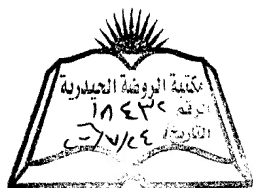 مكتبة الروضة الحيدرية
الرقم ١٨٤٣٢
التاريخ